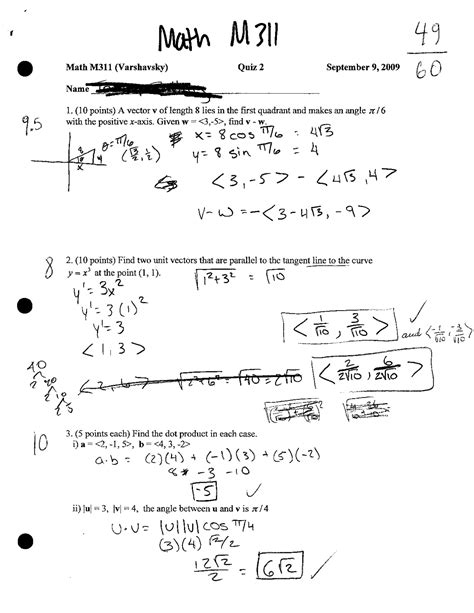 Math M311
49
60
Math M311 (Varshavsky) Quiz 2 September 9, 2009
Name
9.5
1. (10 points) A vector v of length 8 lies in the first quadrant and makes an angle π/6
with the positive x-axis. Given w = <3,-5>, find v - w.
θ=π/6
8
x
(√3/2, 1/2)
x = 8 cos π/6 = 4√3
y = 8 sin π/6 = 4
<3, -5> - <4√3, 4>
v-w = -<3-4√3, -9>
8
2. (10 points) Find two unit vectors that are parallel to the tangent line to the curve
y = x³ at the point (1, 1).
√1²+3² = √10
y' = 3x²
y' = 3(1)²
y' = 3
<1, 3>
<1/√10, 3/√10> ✓
and <-1/√10, -3/√10>
40
2 20
2 10
2 5
<2, 6> √2²+6² = √40 = 2√10
<2/2√10, 6/2√10>
10
3. (5 points each) Find the dot product in each case.
i) a = <2, -1, 5>, b = <4, 3, -2>
a·b = (2)(4) + (-1)(3) + (5)(-2)
8 + -3 -10
-5 ✓
ii) |u| = 3, |v| = 4, the angle between u and v is π/4
U·V = |U||V| cos π/4
(3)(4) √2/2
12√2/2 = 6√2 ✓